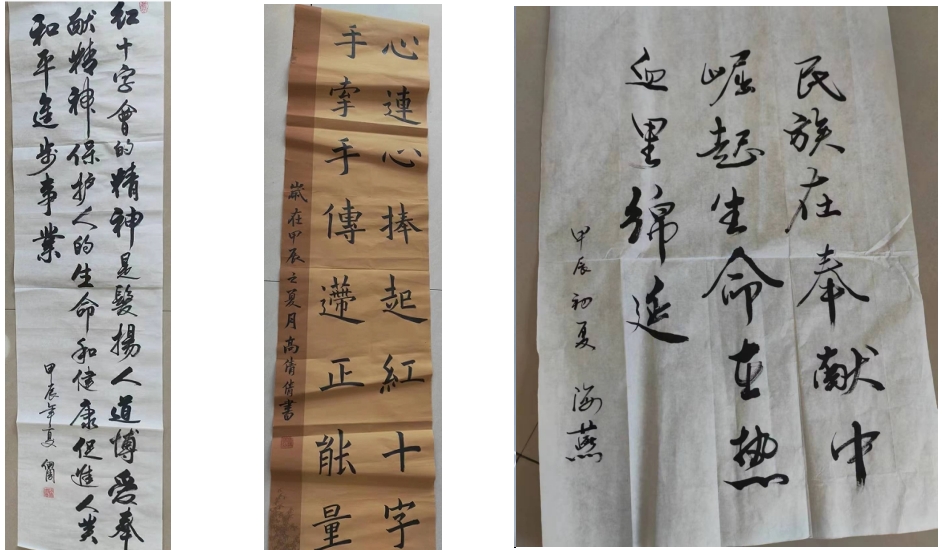 红十字會的精神是髮揚人道博爱奉
献精神保护人的生命和健康促進人类
和平進步事業
甲辰年夏
心連心捧起紅十字
手牽手傳遞正能量
歲在甲辰之夏月高倩倩書
民族在奉献中
崛起生命在热
血里綿延
甲辰初夏 海燕